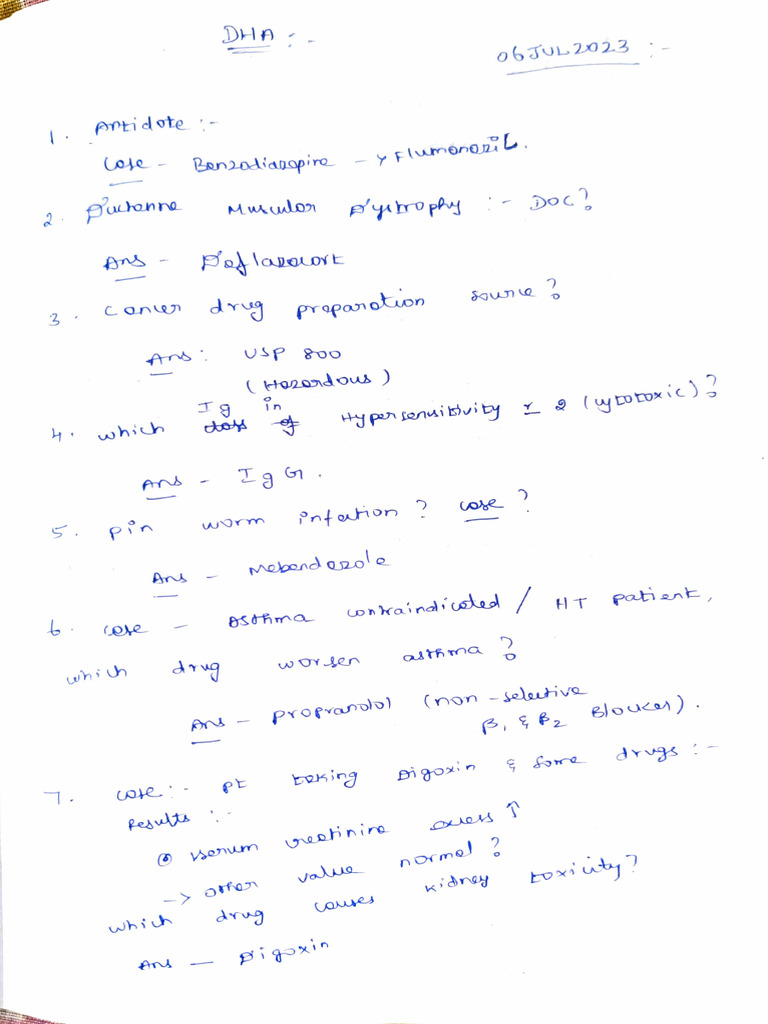 DHA :-
06 JUL 2023 :-
1. Antidote :-
Case - Benzodiazepine -> Flumanazil.
2. Duchenne Muscular Dystrophy :- DOC?
Ans - Deflazacort
3. Cancer drug preparation source?
Ans : USP 800
(Hazardous)
Ig in
4. which class of Hypersensitivity r 2 (cytotoxic)?
Ans - IgG.
5. pin worm infection? case?
Ans - Mebendazole
6. case - Asthma contraindicated / HT patient,
which drug worsen asthma?
Ans - propranolol (non-selective
β1 & β2 Blocker).
7. case :- pt taking Digoxin & some drugs :-
Results :-
serum creatinine excess ↑
-> other value normal?
which drug causes kidney toxicity?
Ans - Digoxin